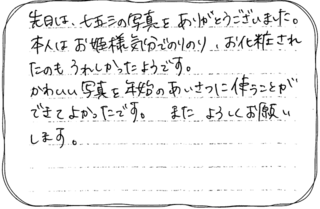 先日は、七五三の写真をありがとうございました。
本人はお姫様気分でのりのり、お化粧され
たのもうれしかったようです。
かわいい写真を年始のあいさつに使うことが
できてよかったです。 また よろしくお願い
します。